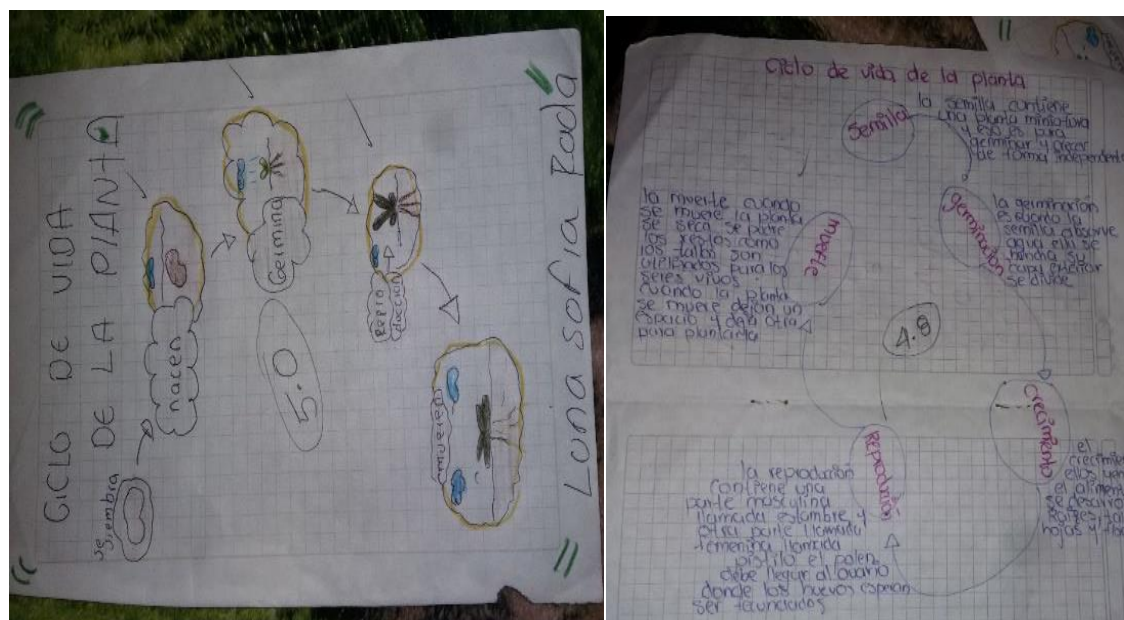 CICLO DE VIDA
DE LA PLANTA
se
siembra
nacen
Germina
5.0
repro
duccion
muere
Luna sofia Rada
Ciclo de vida de la planta
Semilla
la semilla contiene
una planta miniatura
y eso es para
germinar y crecer
de forma independente
germinación
la germinación
es cuando la
semilla absorve
agua ella se
hincha su
capa exterior
se divide
crecimiento
el
crecimie
ellos
el aliment
se desarro
hojas y
Reprodución
la reprodución
contiene una
parte masculina
llamada estambre y
otra parte llamada
femenina llamada
pistilo el polen
debe llegar al ovario
donde los huevos esperan
ser fecundados
muerte
la muerte cuando
se muere la planta
se seca se pudre
los restos como
los tallos son
utilizados para los
seres vivos
cuando la planta
se muere dejan un
espacio y deja otra
para plantarla
4.8